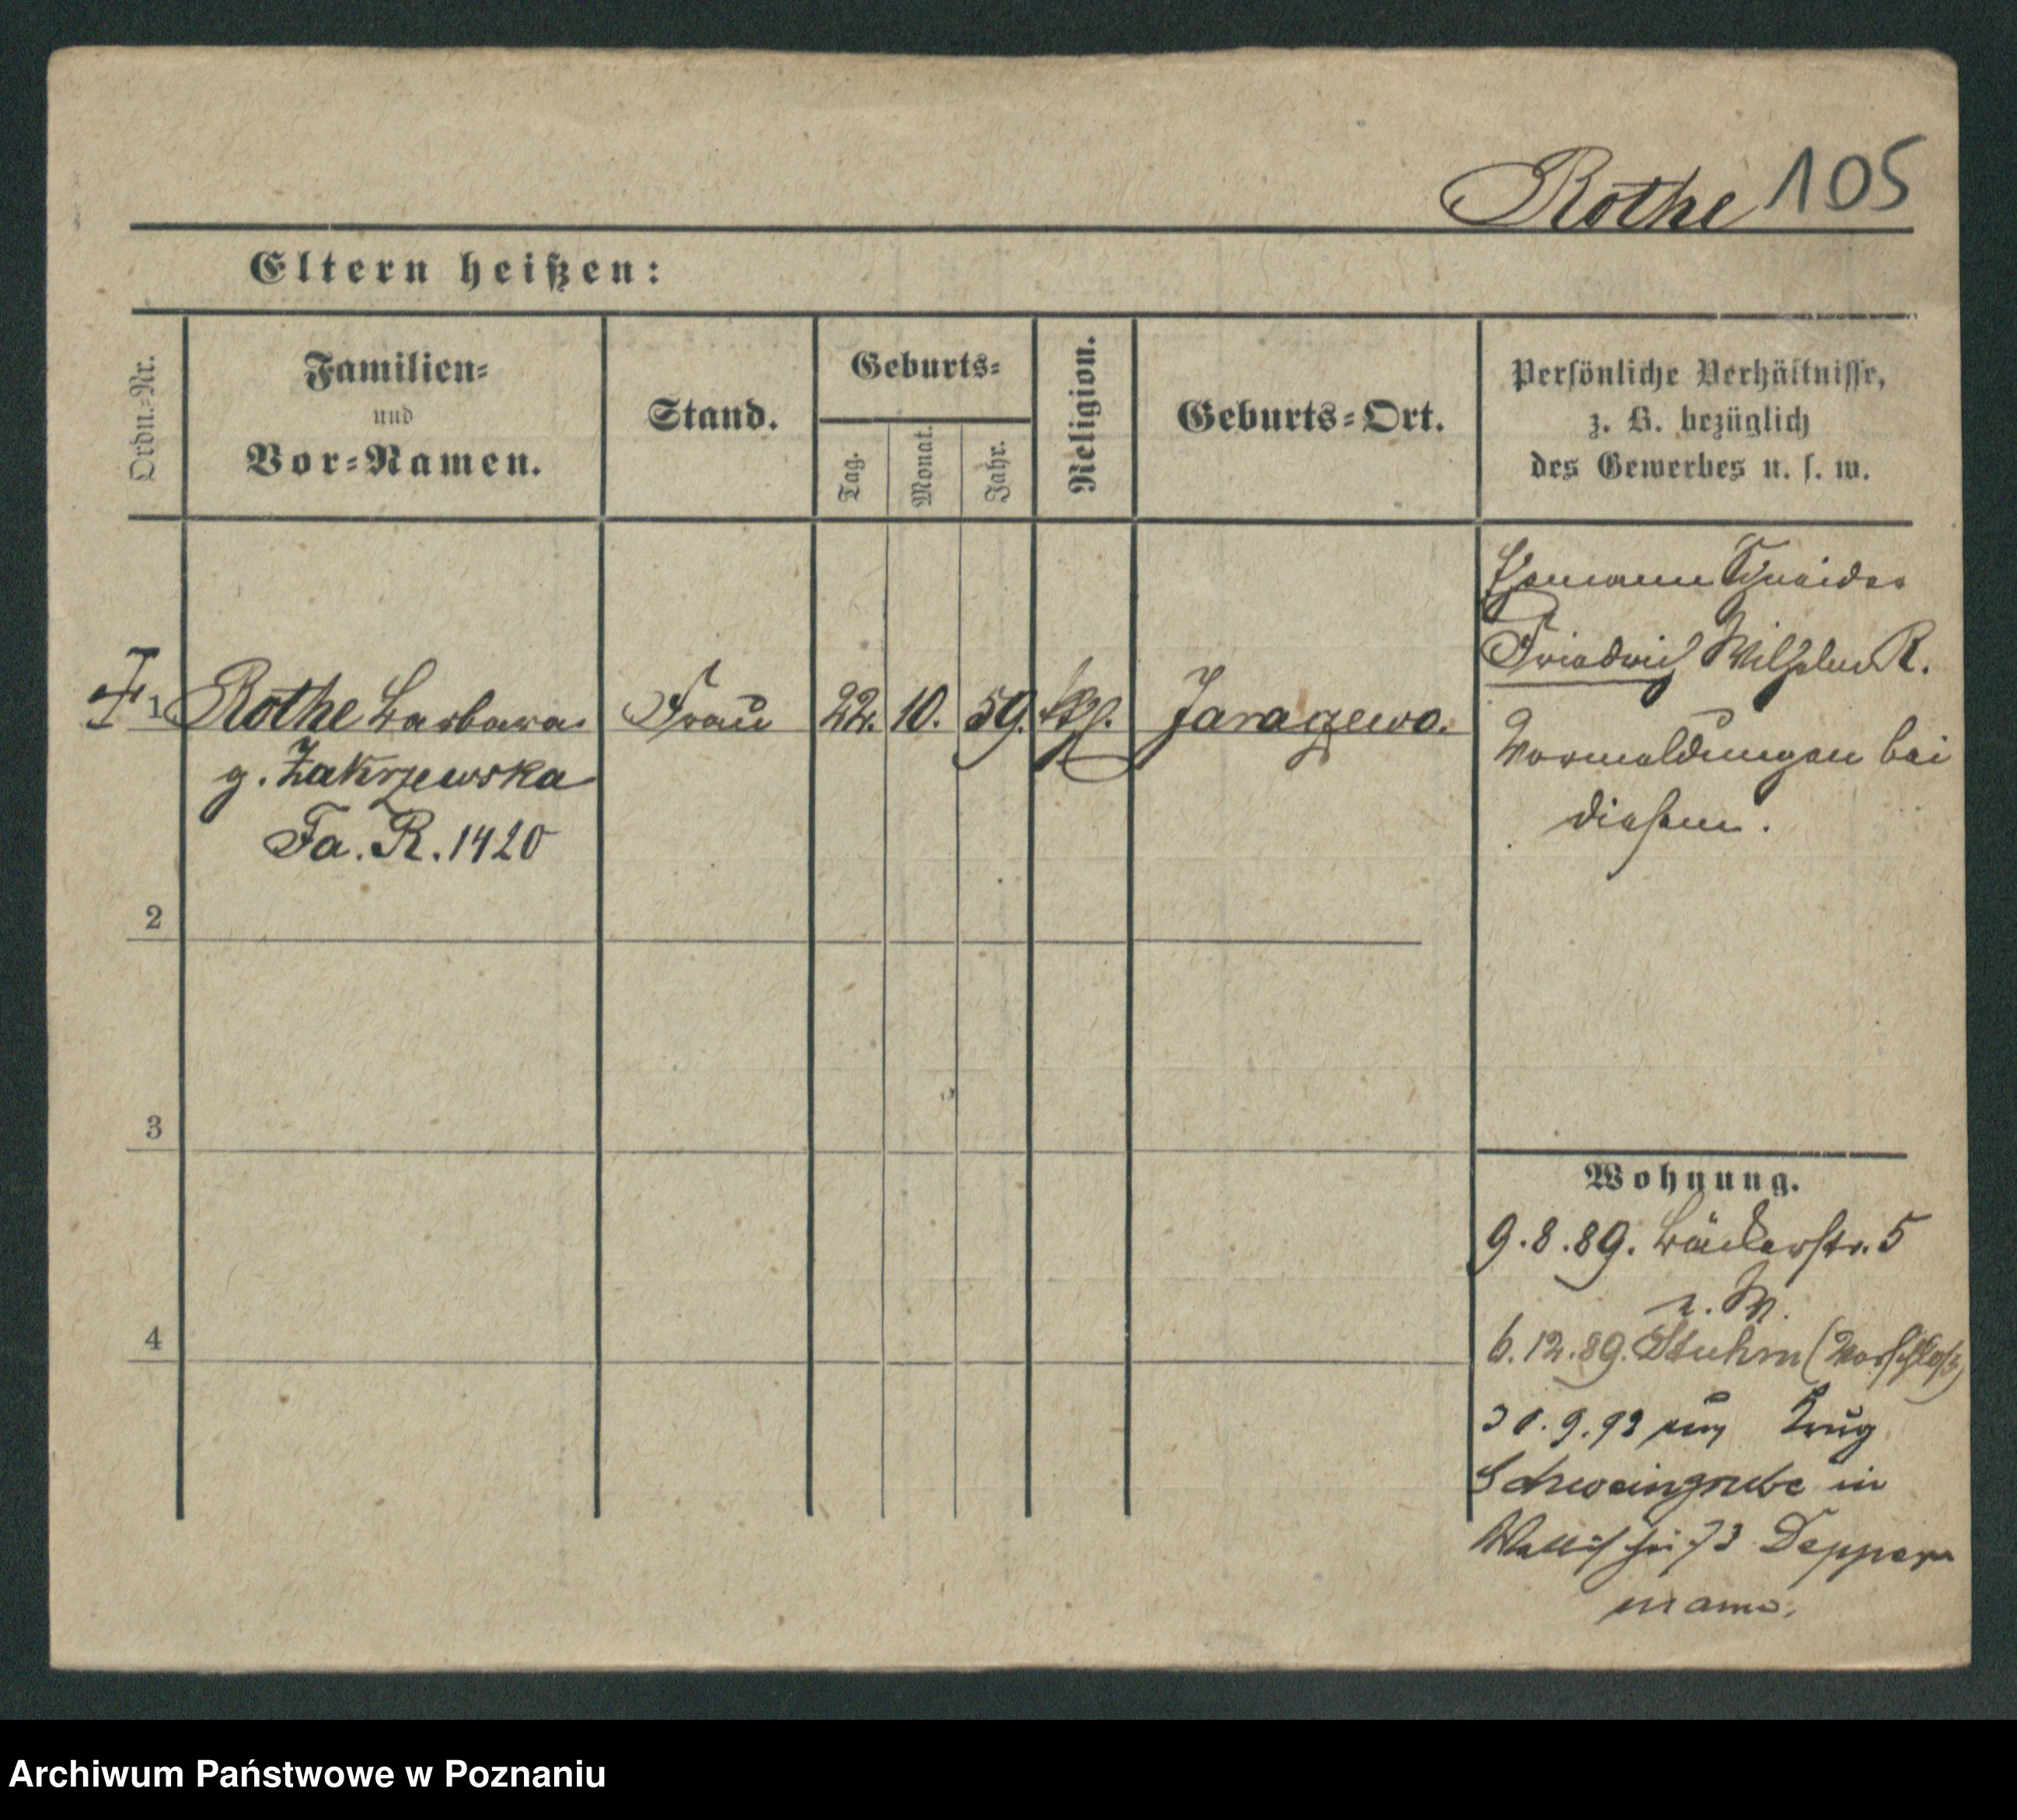 Rothe 105
Eltern heißen:
Ordn.-Nr.
Familien-
und
Vor-Namen.
Stand.
Geburts-
Tag.
Monat.
Jahr.
Religion.
Geburts-Ort.
Persönliche Verhältnisse,
z. B. bezüglich
des Gewerbes u. s. w.
1 Rothe Barbara Frau 22. 10. 59. kth. Jaragewo.
g. Zakrzewska
Fa. R. 1420
Ehemann Schneider
Friedrich Wilhelm R.
Vormeldungen bei
diesem.
2
3
4
Wohnung.
9.8.89. Bäckerstr. 5
n. W.
6.12.89. Stuhm (Vorschloß)
30.9.93 Krug
Schweingrube in
Wallischei 73 Depper
mann.
Archiwum Państwowe w Poznaniu